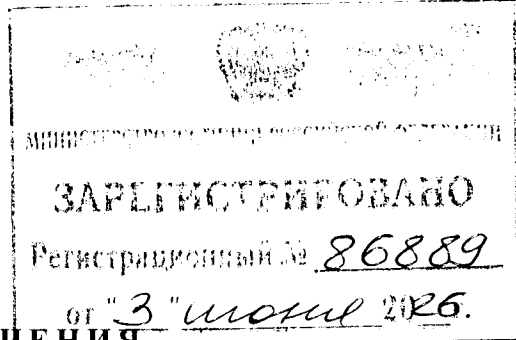 МИНИСТЕРСТВО ЮСТИЦИИ РОССИЙСКОЙ ФЕДЕРАЦИИ
ЗАРЕГИСТРИРОВАНО
Регистрационный № 86889
от "3" июня 2026.
ЧЕНИЯ